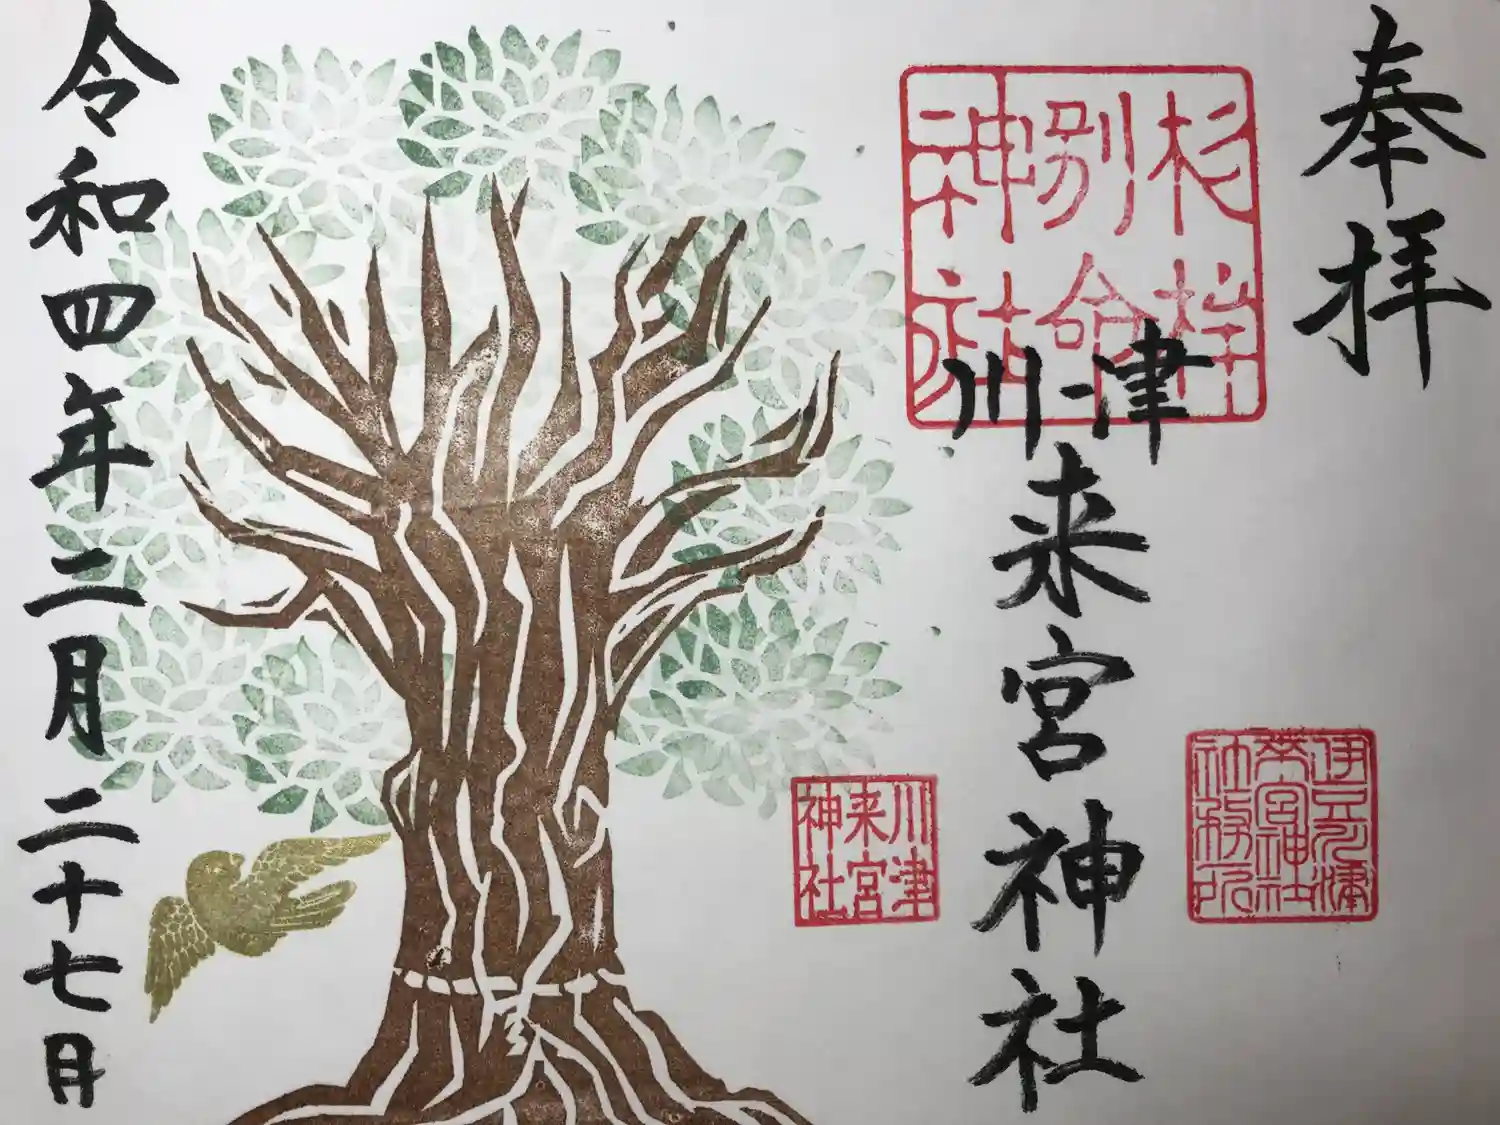 奉拝
杉桙
別命
神社
伊豆川津
來宮神社
社務所
川津
来宮神社
川津
来宮
神社
令和四年二月二十七日